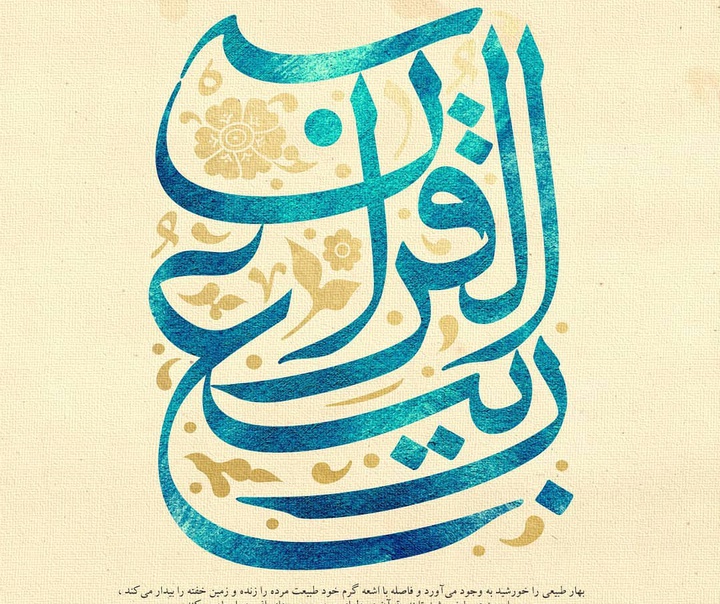 ربيع القرآن
بهار طبیعی را خورشید به وجود می‌آورد و فاصله با اشعه گرم خود طبیعت مرده را زنده و زمین خفته را بیدار می‌کند ،